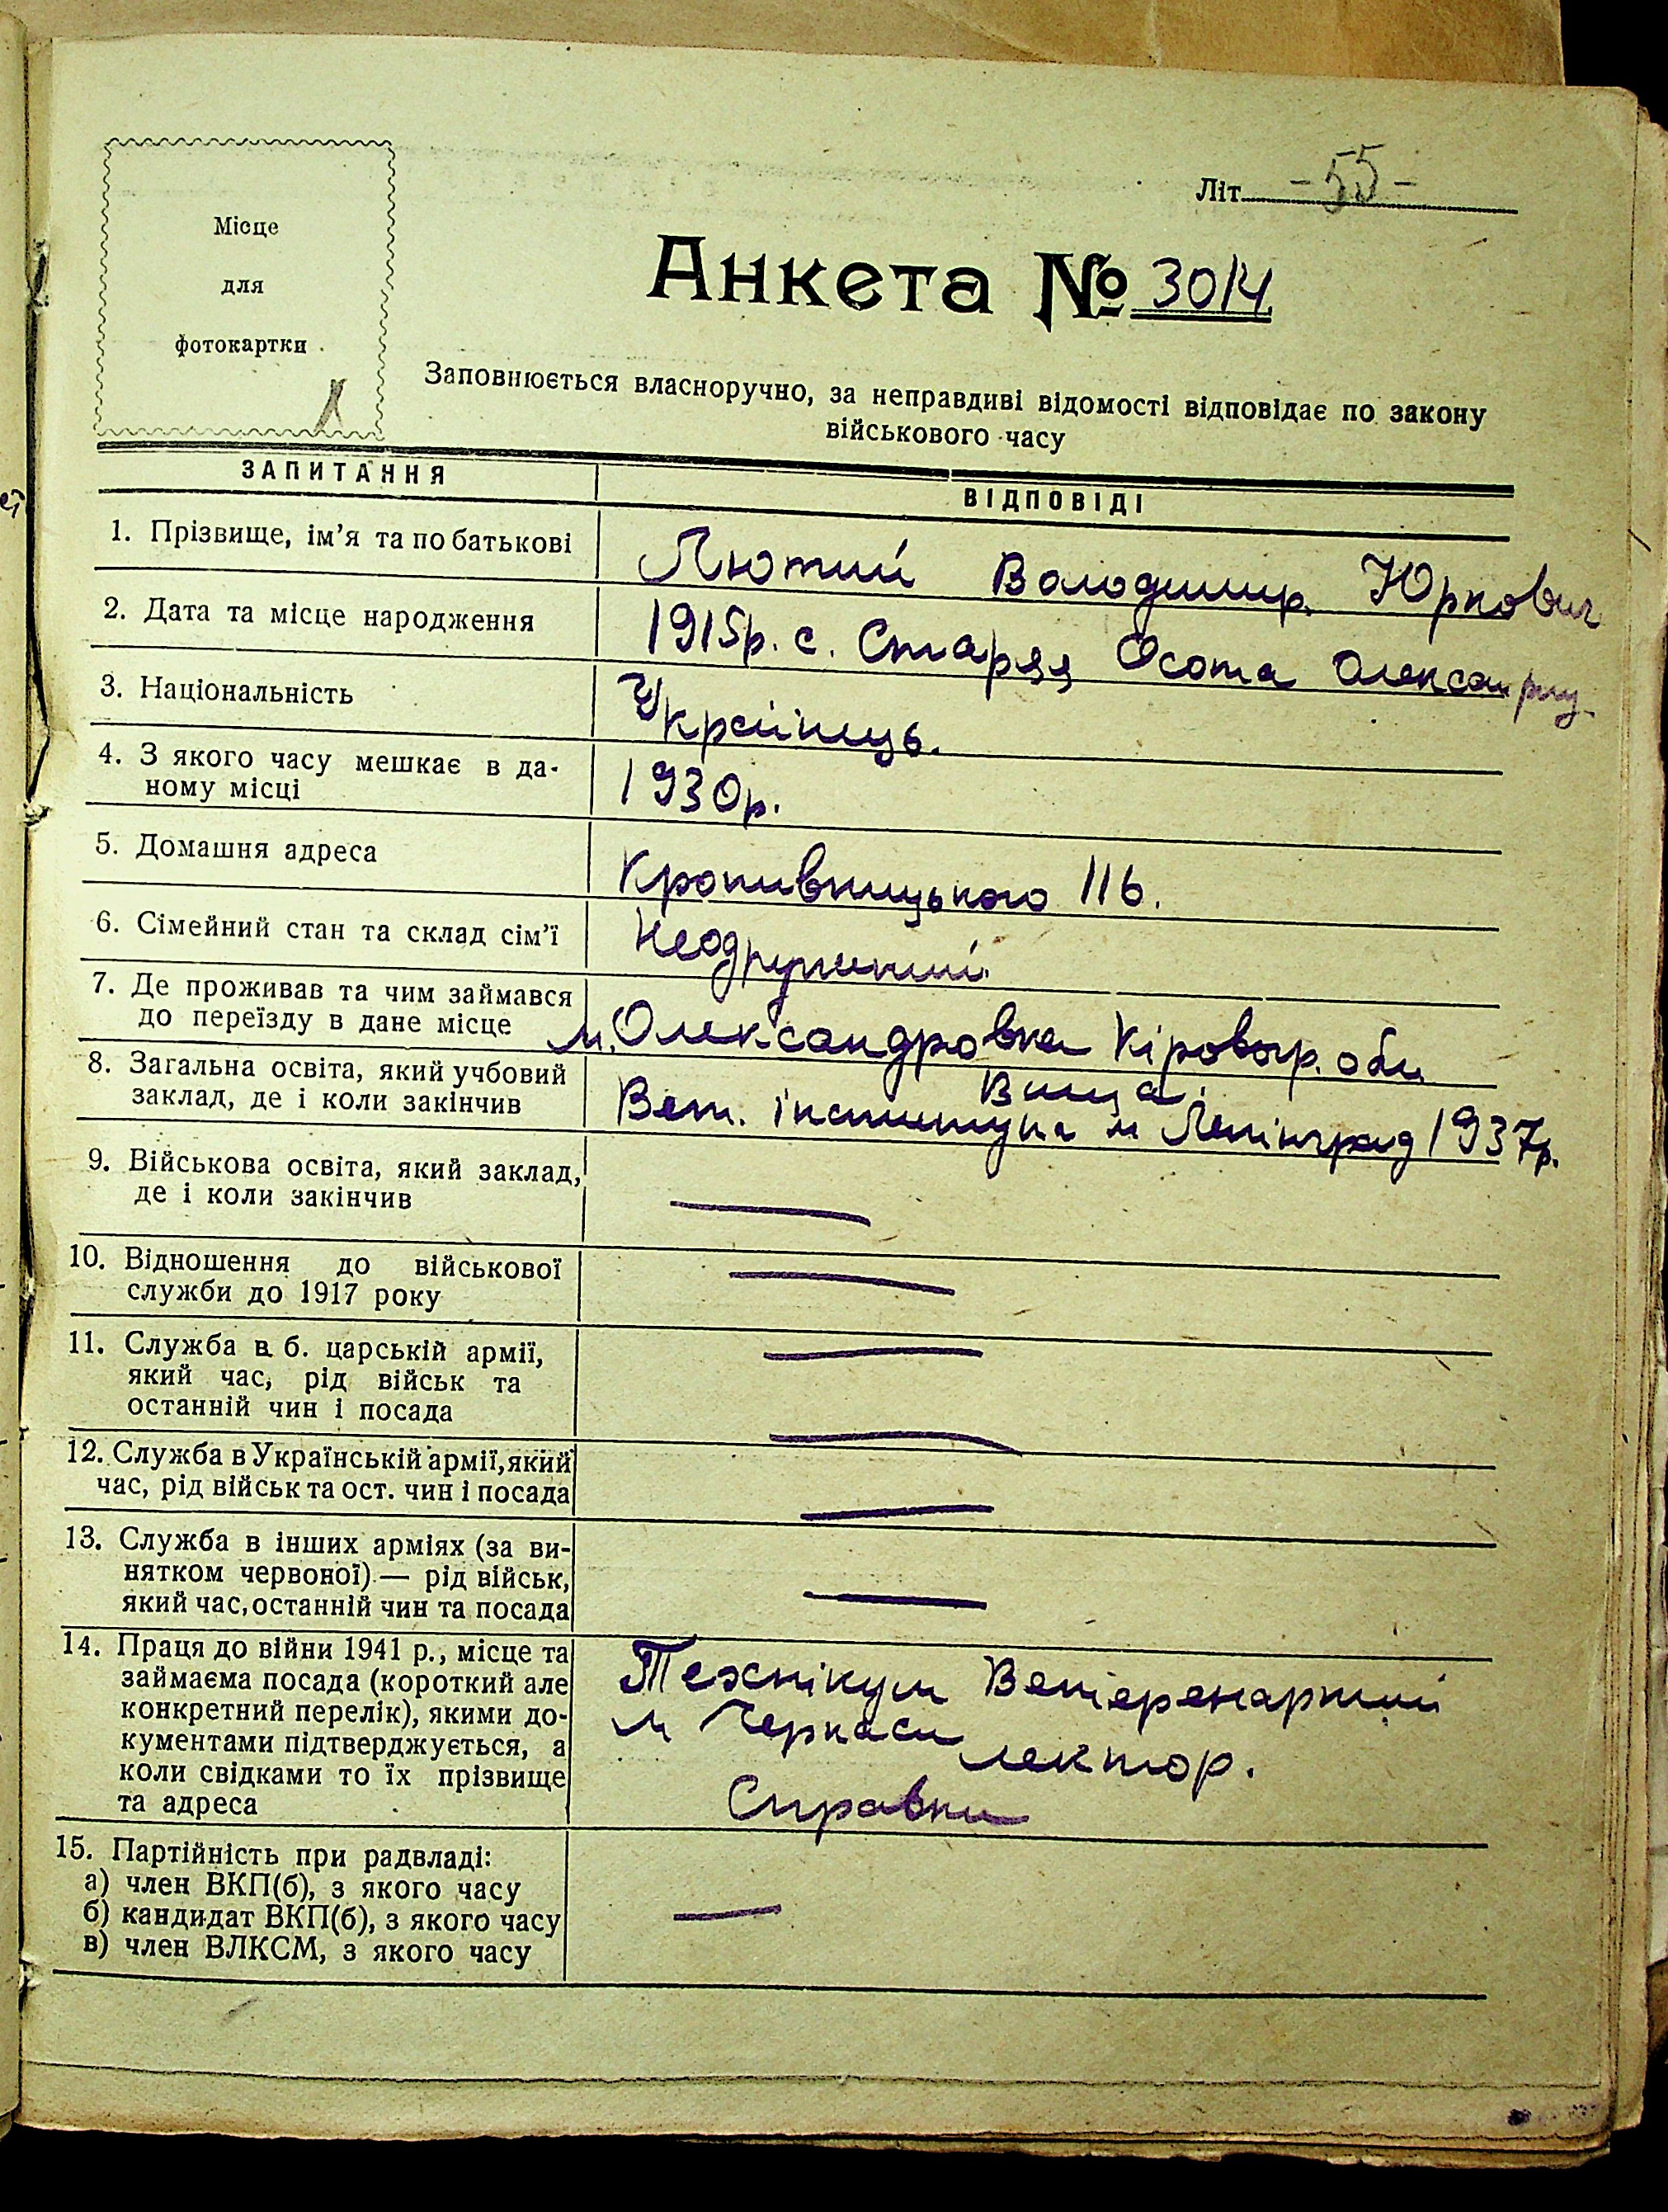 Літ. -55-
Місце
для
фотокартки
Анкета № 3014
Заповнюється власноручно, за неправдиві відомості відповідає по закону
військового часу
ЗАПИТАННЯ
ВІДПОВІДІ
1. Прізвище, ім'я та по батькові
Лютий Володимир Юркович
2. Дата та місце народження
1915р. с. Старая Осота
3. Національність
Українець.
4. З якого часу мешкає в да-
ному місці
1930р.
5. Домашня адреса
Кропивницького 116.
6. Сімейний стан та склад сім'ї
Неодружений
7. Де проживав та чим займався
до переїзду в дане місце
м. Олександровка Кіровогр. обл.
8. Загальна освіта, який учбовий
заклад, де і коли закінчив
Вища.
Вет. інститут м Ленінград 1937р.
9. Військова освіта, який заклад,
де і коли закінчив
10. Відношення до військової
служби до 1917 року
11. Служба в б. царській армії,
який час, рід військ та
останній чин і посада
12. Служба в Українській армії, який
час, рід військ та ост. чин і посада
13. Служба в інших арміях (за ви-
нятком червоної) — рід військ,
який час, останній чин та посада
14. Праця до війни 1941 р., місце та
займаєма посада (короткий але
конкретний перелік), якими до-
кументами підтверджується, а
коли свідками то їх прізвище
та адреса
Технікум Ветеренарний
м Черкаси лектор.
Справки
15. Партійність при радвладі:
а) член ВКП(б), з якого часу
б) кандидат ВКП(б), з якого часу
в) член ВЛКСМ, з якого часу